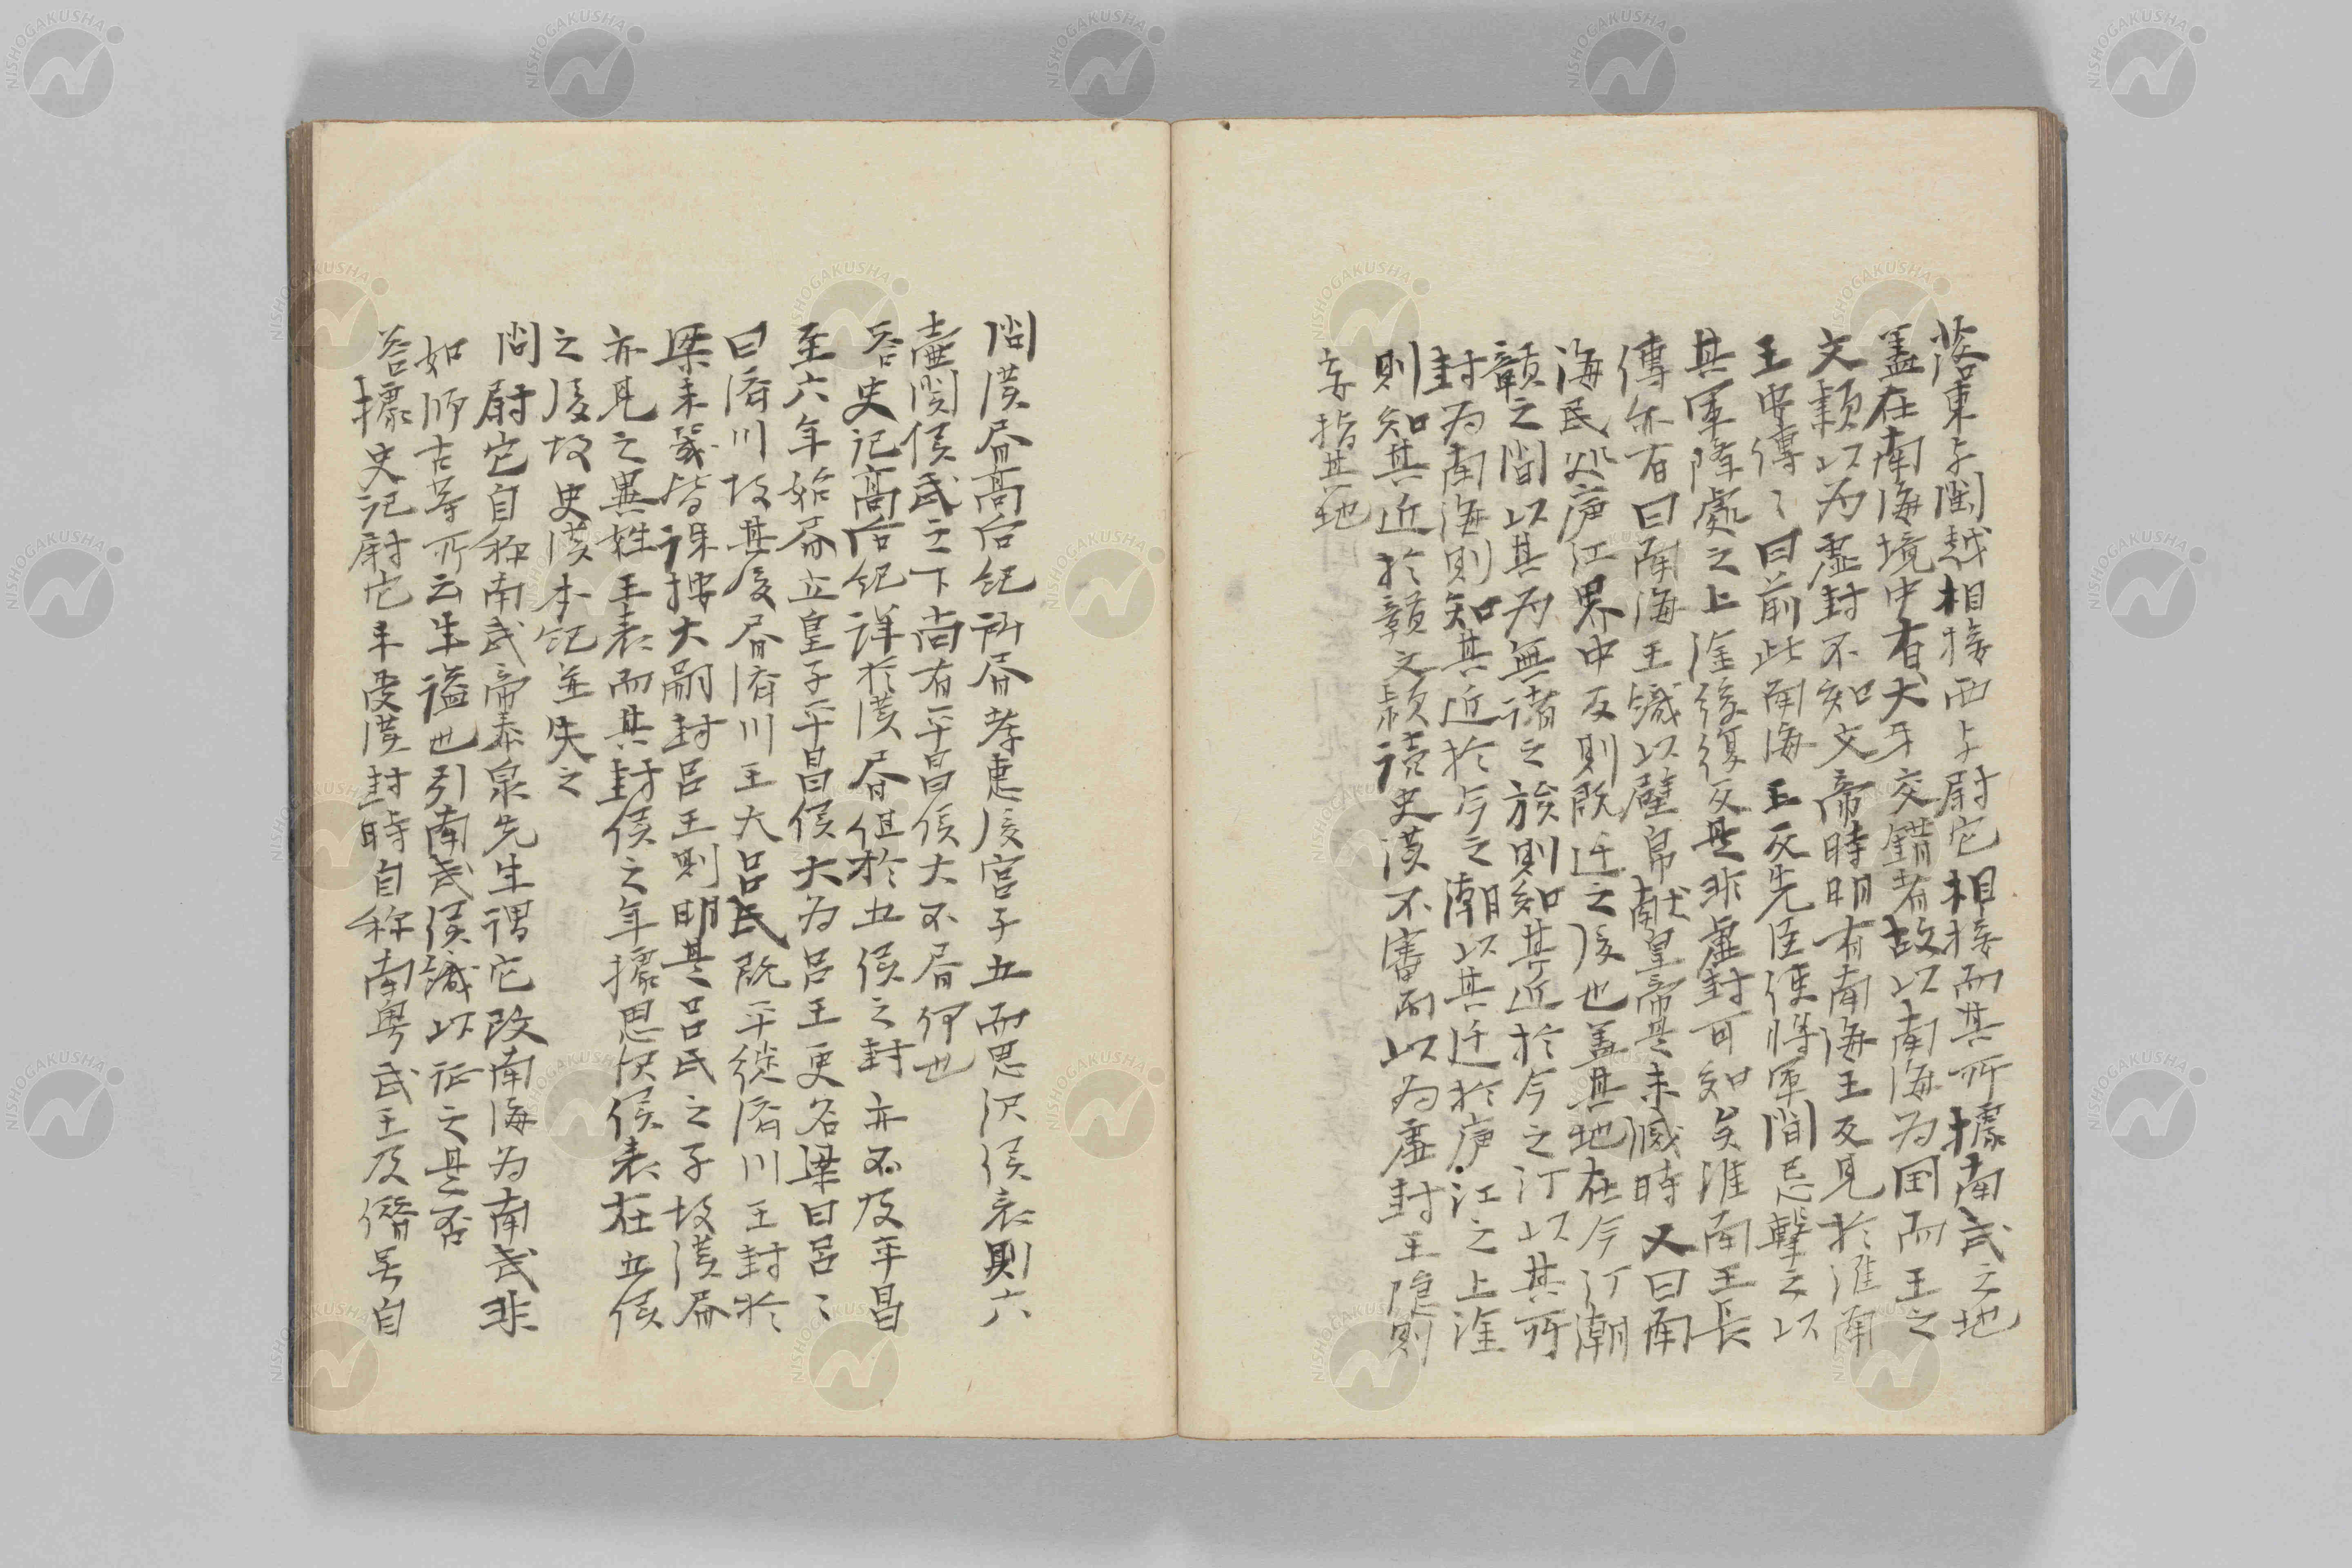 落東与閩越相接西与尉它相接而其所據南武之地
盖在南海境中有犬牙交錯者故以南海为国而王之
文穎以为虚封不知文帝時明有南海王反見於淮南
王安傳〻曰前此南海王反先臣使将軍間忌擊之以
其軍降處之上淦後復反是非虚封可知矣淮南王長
傳亦有曰南海王織以璧帛献皇帝是未滅時又曰南
海民処庐江界中反則既迁之後也盖其地在今汀潮
贛之間以其为無诸之族則知其近於今之汀以其所
封为南海則知其近於今之潮以其迁於庐江之上淦
則知其近於贛文穎读史漢不審而以为虚封王隠則
妄指其地
问漢書高后纪所書孝惠後宫子五而恩沢侯表則六
壶関侯武之下尚有平昌侯大不書何也
答史记高后纪詳於漢書但於五侯之封亦不及平昌
至六年始書立皇子平昌侯大为吕王更名梁曰吕〻
曰济川故其後書济川王大吕氏既平徙济川王封於
梁未幾皆诛按大嗣封吕王則明其吕氏之子故漢書
亦見之異姓王表而其封侯之年據恩沢侯表在五侯
之後故史漢本纪并失之
问尉它自称南武帝泰泉先生谓它改南海为南武非
如师古等所云生谥也引南武侯織以证之是否
答據史记尉它未受漢封時自称南粤武王及僭号自